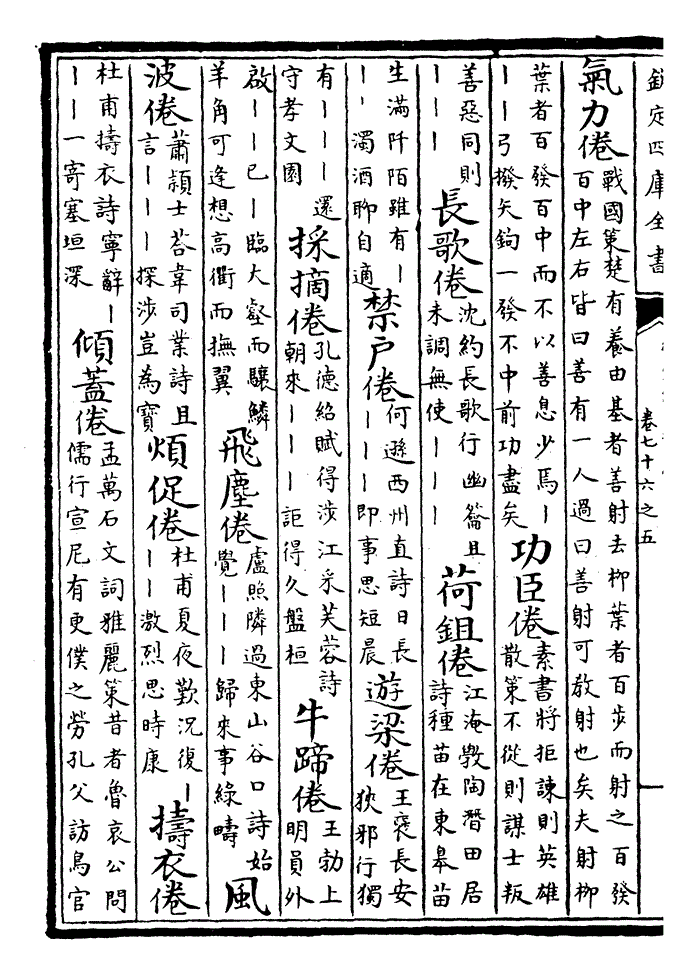 欽定四庫全書
卷七十六之五
一
氣力倦戰國策楚有養由基者善射去柳葉者百步而射之百發百中左右皆曰善有一人過曰善射可教射也矣夫射柳
葉者百發百中而不以善息少焉丨丨丨弓撥矢鉤一發不中前功盡矣功臣倦素書將拒諫則英雄散策不從則謀士叛
善惡同則丨丨丨長歌倦沈約長歌行幽籥且未調無使丨丨丨荷鉏倦江淹斆陶潛田居詩種苗在東皋苗
生滿阡陌雖有丨丨丨濁酒聊自適禁戶倦何遜西州直詩日長丨丨丨即事思短晨遊梁倦王褒長安狹邪行獨
有丨丨丨還守孝文園採摘倦孔德紹賦得涉江采芙蓉詩朝來丨丨丨詎得久盤桓牛蹄倦王勃上明員外
啟丨丨已丨臨大壑而驤鱗羊角可逢想高衢而撫翼飛塵倦盧照隣過東山谷口詩始覺丨丨丨歸來事綠疇風
波倦蕭頴士荅韋司業詩且言丨丨丨探涉豈為寶煩促倦杜甫夏夜歎況復丨丨丨激烈思時康擣衣倦
杜甫擣衣詩寧辭丨丨丨一寄塞垣深傾蓋倦孟萬石文詞雅麗策昔者魯哀公問儒行宣尼有更僕之勞孔父訪鳥官